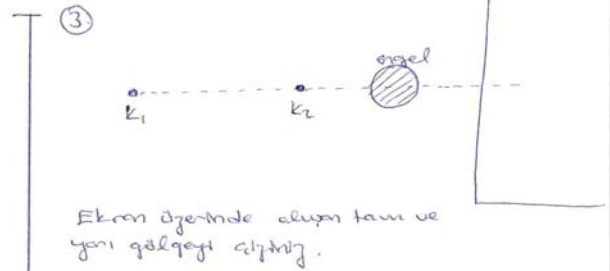 3.
engel
K₁
K₂
Ekran üzerinde oluşan tam ve
yarı gölgeyi çiziniz.